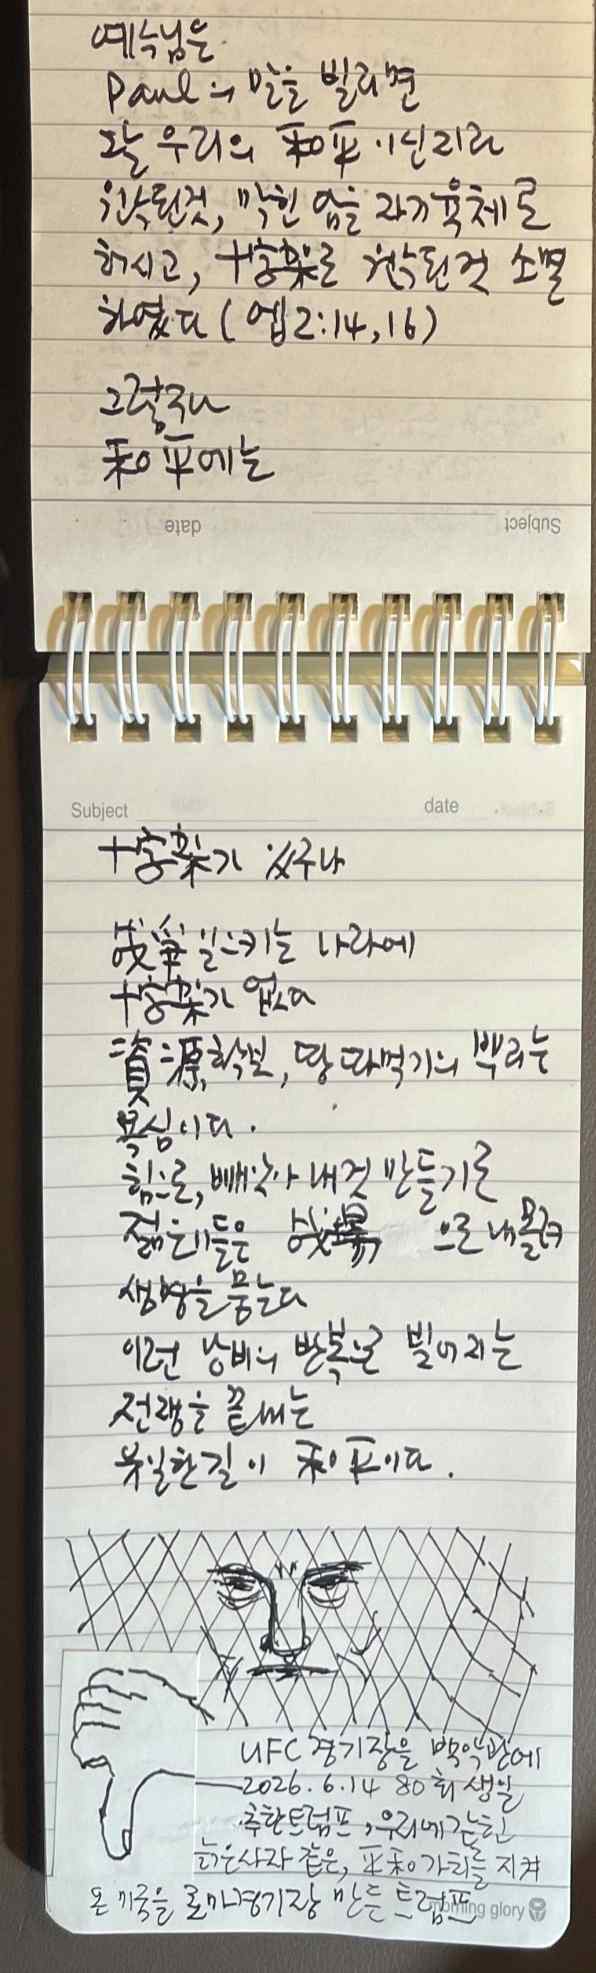 예수님은
Paul의 말을 빌리면
그는 우리의 和平이신지라
원수된것, 막힌 담을 자기육체로
허시고, 十字架로 원수된것 소멸
하였다 (엡2:14,16)
그렇구나
和平에는
Subject date
Subject date
十字架가 있구나
战爭 일으키는 나라에
十字架가 없다
資源,확보, 땅 따먹기의 뿌리는
욕심이다.
힘으로, 빼앗아 내것 만들기로
젊은이들은 战場으로 내몰려
생명을 뿜는다
이런 낭비의 반복으로 빌어지는
전쟁을 끝내는
유일한길이 和平이다.
UFC 경기장을 백악관에
2026.6.14 80회 생일
추한트럼프, 우리에갇힌
늙은사자 같은, 平和가치를 지켜
온 미국을 로마경기장 만든 트럼프
morning glory